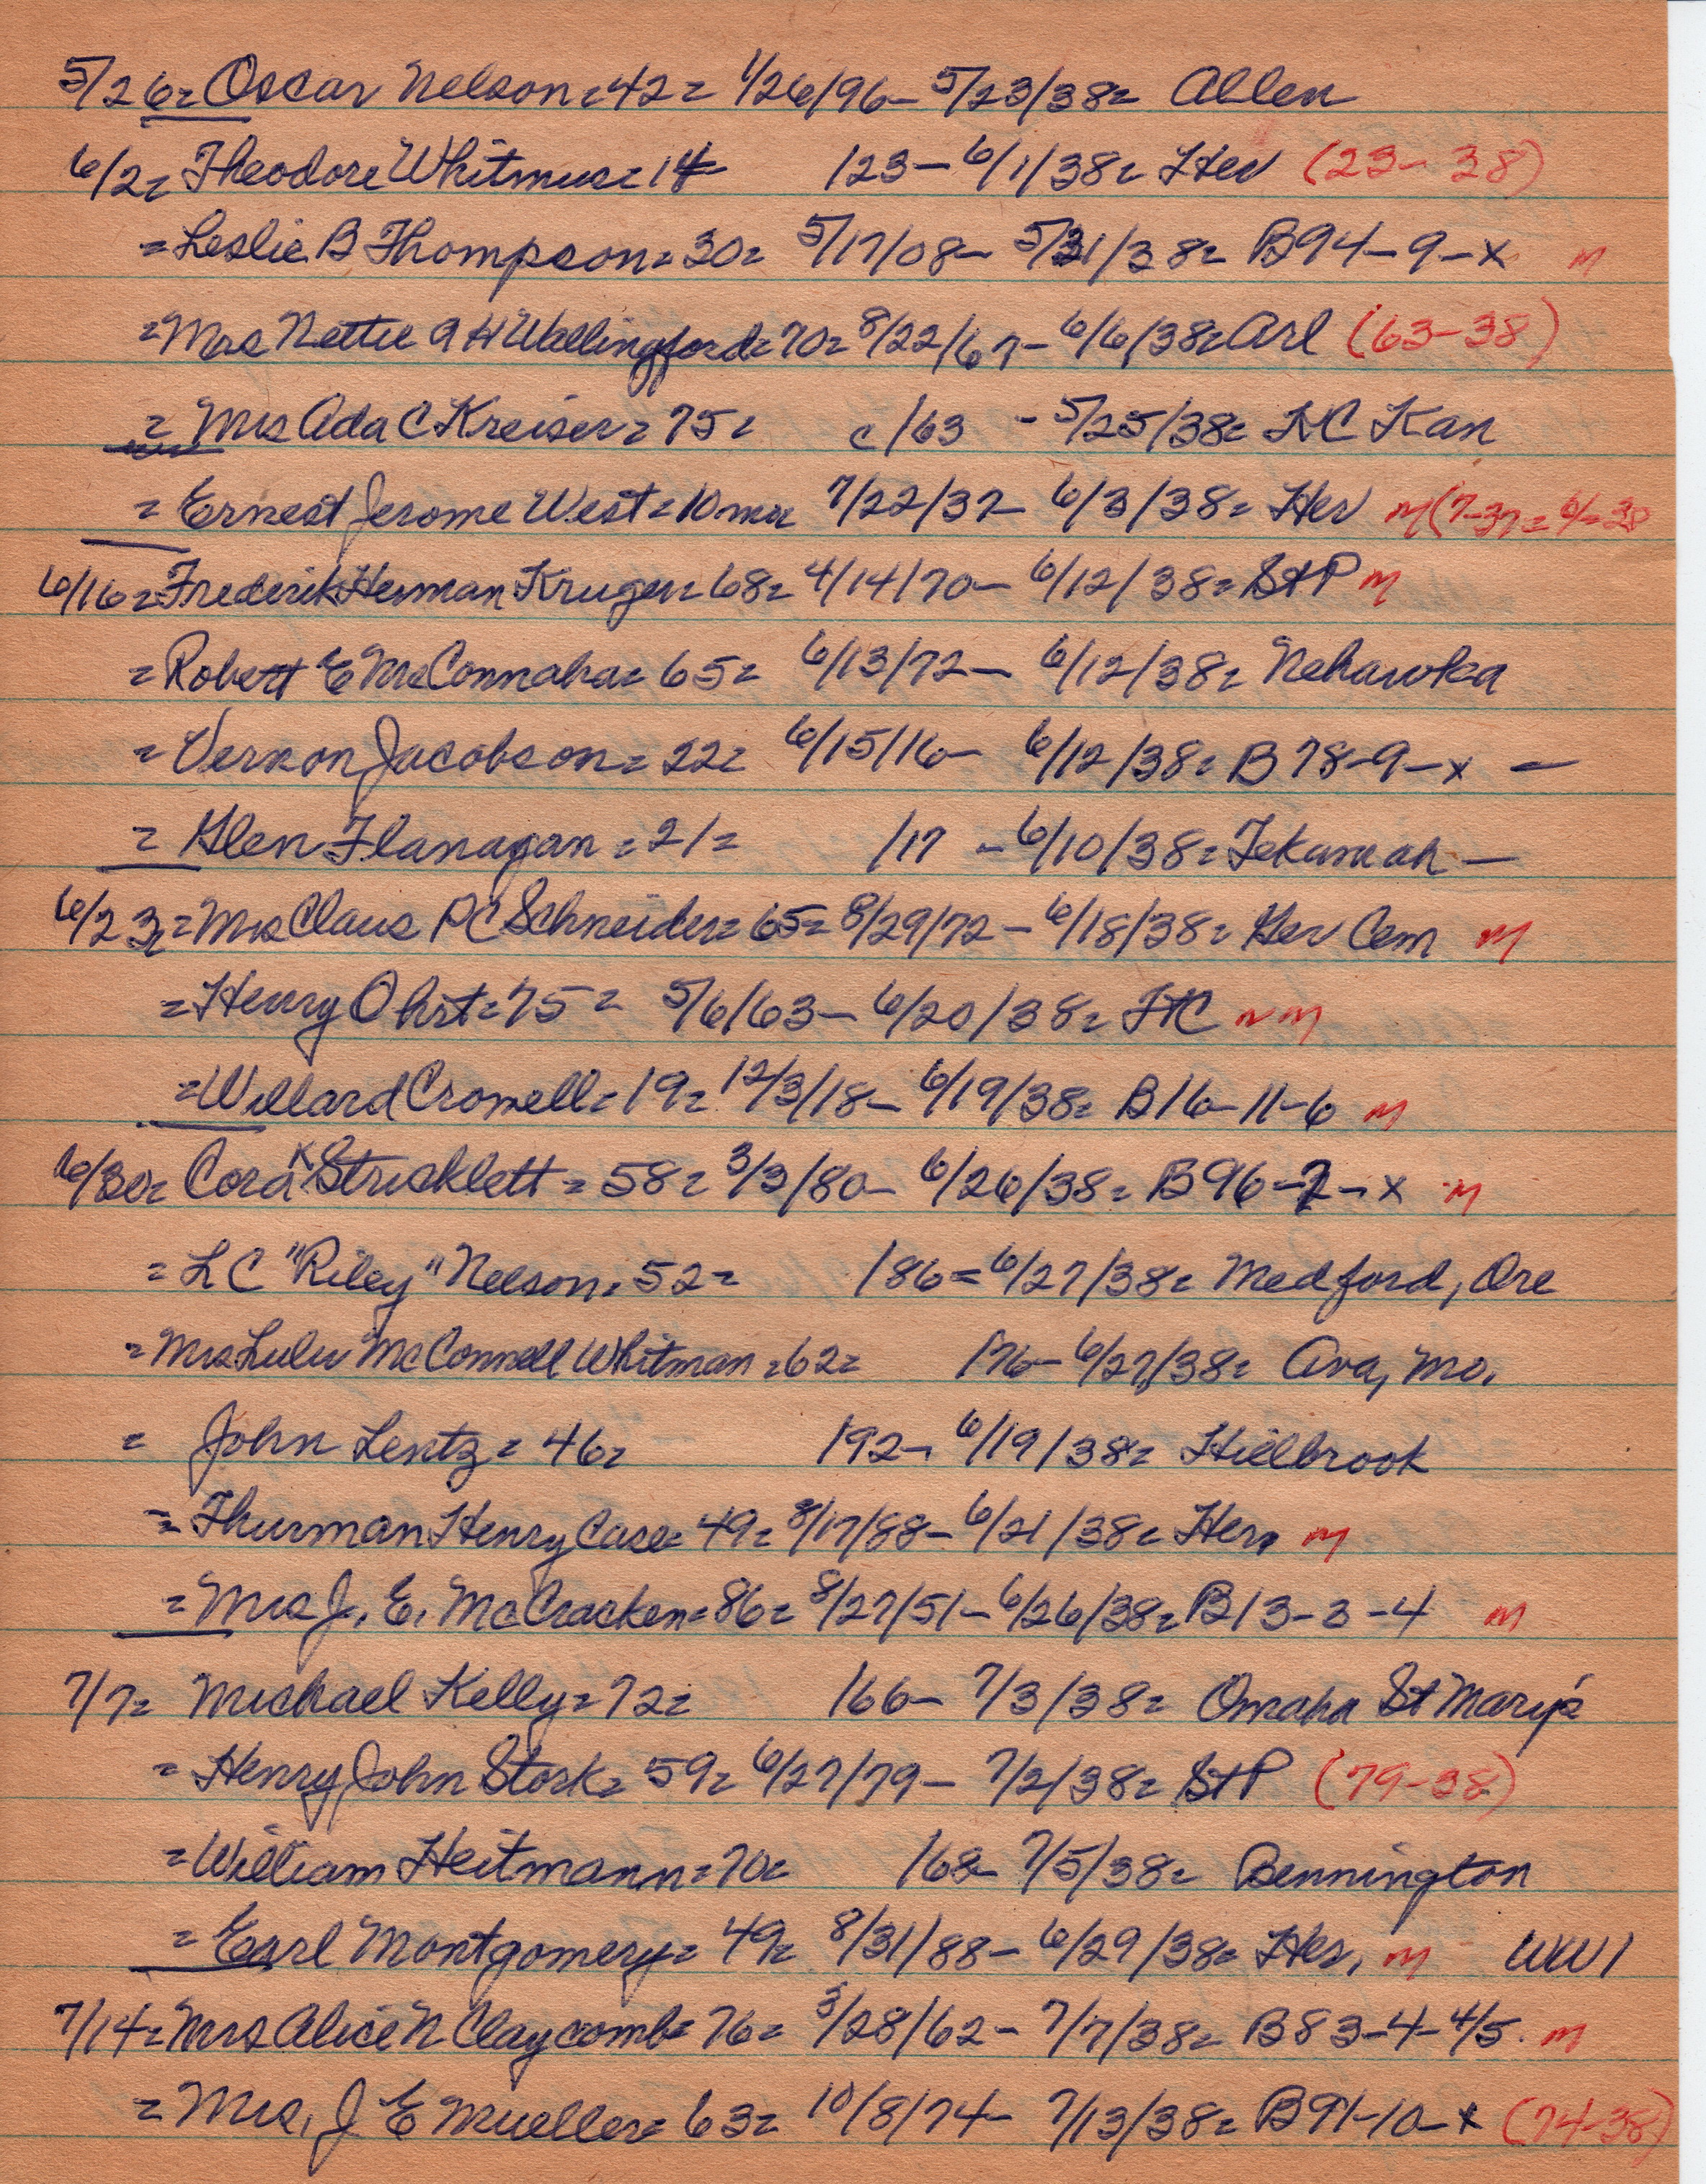 5/26= Oscar Nelson=42= 1/26/96- 5/23/38= Allen
6/2= Theodore Whitmus=14 /23- 6/1/38= Her (23-38)
=Leslie B Thompson=30= 5/17/08- 5/31/38= B94-9-x m
=Mrs Nettie A H Wallingford=70= 8/22/67- 6/6/38=Arl (63-38)
= Mrs Ada C Kreiser= 75= c/63 - 5/25/38= KC Kan
= Ernest Jerome West=10 mos 7/22/37- 6/3/38= Her m(7-37= 6/=38
6/16=Frederick Herman Kruger=68= 4/14/70- 6/12/38= St P m
=Robert E McConnaha= 65= 6/13/72- 6/12/38= Nehawka
=Vernon Jacobson=22= 6/15/16- 6/12/38= B78-9-x -
= Glen Flanagan=21= /17 -6/10/38=Tekamah -
6/23=Mrs Claus P C Schneider=65=8/29/72- 6/18/38= Her Cem m
=Henry Ohrt=75= 5/6/63- 6/20/38= FtC nm
=Willard Cromell=19= 12/3/18- 6/19/38= B16-11-6 m
6/30= Cora K Stricklett=58= 3/3/80- 6/26/38= B96-2-x m
= L C "Riley" Nelson=52= /86=6/27/38= Medford, Ore
=Mrs Lulu McConnell Whitman=62= /76- 6/27/38= Ava, Mo.
= John Lentz=46= /92- 6/19/38= Hillbrook
= Thurman Henry Case=49= 8/17/88- 6/21/38= Her m
=Mrs J. E. McCracken=86= 8/27/51- 6/26/38= B13-3-4 m
7/7= Michael Kelly=72= /66- 7/3/38= Omaha St Mary's
= Henry John Stork=59= 6/27/79- 7/2/38= St P (79-38)
=William Heitmann=70= /68- 7/5/38= Bennington
= Earl Montgomery=49= 8/31/88- 6/29/38= Her, m WW1
7/14=Mrs Alice N Claycomb=76= 3/28/62- 7/7/38= B83-4-4/5. m
= Mrs, J E Mueller=63= 10/8/74- 7/13/38= B91-10-x (74-38)